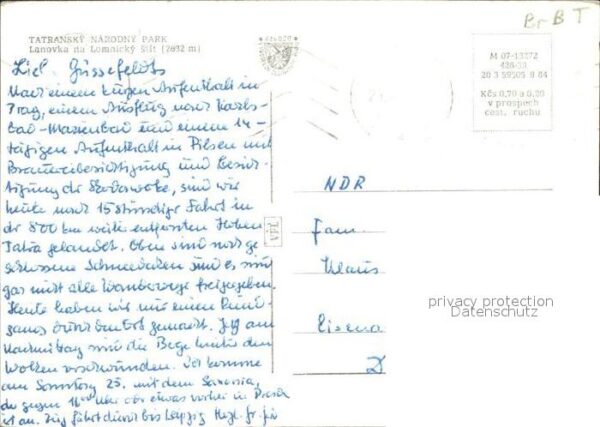 TATRANSKÝ NÁRODNÝ PARK
Lanovka na Lomnický štít (2632 m)
BrB T
M 07-13272
20 3 59505 9 84
Kčs 0,70 a 0,20
v prospech
cest. ruchu
Nach einem kurzen Aufenthalt in
Prag, einem Ausflug nach Karls-
bad-Marienbad und einem 14-
tägigen Aufenthalt in Pilsen mit
Brauereibesichtigung und Besich-
tigung der Skodawerke, sind wir
heute nach 15stündiger Fahrt in
der 800 km weit entfernten Hohen
Tatra gelandet. Oben sind noch ge
schlossene Schneedecken und es sind
gar nicht alle Wanderwege freigegeben.
Heute haben wir nur einen Rund-
gang gemacht. Jetzt am
Nachmittag sind die Berge hinter den
Wolken verschwunden. Ich komme
am Sonntag 25. mit dem Saxonia,
der gegen Uhr oder etwas vorher in
ist an. Zug fährt durch bis Leipzig
NDR
Fam.
Klaus
D
privacy protection
Datenschutz